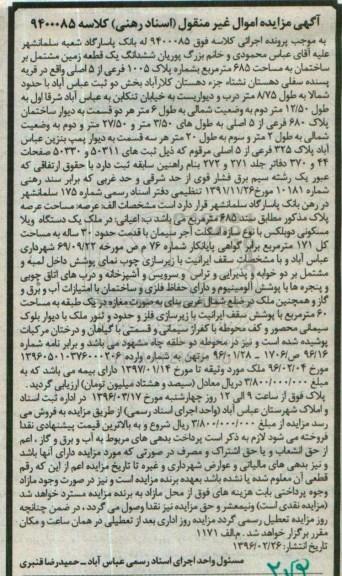 آگهی مزایده اموال غیر منقول (اسناد رهنی) کلاسه ۹۴۰۰۰۸۵
به موجب پرونده اجرائی کلاسه فوق ۹۴۰۰۰۸۵ له بانک پاسارگاد شعبه سلمانشهر
علیه آقای عباس محمودی و خانم بزرگ پوریان ششدانگ یک قطعه زمین مشتمل بر
ساختمان به مساحت ۶۸۵ مترمربع بشماره پلاک ۱۰۰۵ فرعی از ۵ اصلی واقع در قریه
پسنده سفلی دهستان نشتاء جزء دهستان کلارآباد بخش دو ثبت عباس آباد با حدود
شمالا به طول ۸۷۵ متر درب و دیواریست به خیابان تنکابن به عباس آباد شرقا اول به
طول ۱۲/۵۰ متر دوم به وضعیت شمالی به طول ۶ متر هر دو قسمت به دیوار ساختمان
پلاک ۶۸۰ فرعی از ۵ اصلی به طول های ۳/۵۰ متر و ۲۷/۵۰ متر و دوم به وضعیت
شمالی به طول ۲ متر و سوم به طول ۲۰ متر هر سه قسمت به دیوار پمپ بنزین عباس
آباد پلاک ۳۲۵ فرعی از ۵ اصلی مرقوم که ذیل ثبت های ۵۰۳۱۱ و ۵۰۳۳۰ صفحات
۴۴ و ۳۷۰ دفاتر جلد ۲۷۱ و ۲۷۳ بنام راهنین سابقه ثبت دارد با حقوق ارتفاقی که
عبور یک رشته سیم برق فشار قوی از حد شرقی و حد غربی که برابر سند رهنی
شماره ۱۰۱۸۱ مورخ ۱۳۹۱/۱۱/۲۶ تنظیمی دفتر اسناد رسمی شماره ۱۷۵ سلمانشهر
در رهن بانک پاسارگاد سلمانشهر قرار دارد است مشخصات الف: عرصه: مساحت عرصه
پلاک مذکور مطابق سند ۶۸۵ مترمربع می باشد ب: اعیانی: در ملک یک دستگاه ویلا
مسکونی دوبلکس با نوع سازه اسکلت آجر سیمان با قدمت حدود ۳۰ ساله به مساحت
کل ۱۷۱ مترمربع برابر گواهی پایانکار شماره ۷۶ م مورخه ۶۹/۰۹/۲۲ شهرداری
عباس آباد و با مشخصات سقف ایرانیت با زیرسازی چوب نمای پوشش داخل لمبه و
مشتمل بر دو خوابه و پذیرایی و تراس و سرویس و آشپزخانه و درب های اتاق چوبی
و پنجره ها با پوشش آلومینیوم و دارای حفاظ فلزی و ساختمان با امتیازات آب و برق و
گاز و همچنین ملک در ضلع شمال غربی بنای به صورت مغازه در یک طبقه به مساحت
۶۰ مترمربع با پوشش سقف ایرانیت با زیرسازی فلز و حدود و ثغور ملک با دیوار بلوک
سیمانی محصور و کف محوطه با کفراژ سیمانی و قسمتی با گیاهان و درختان مرکبات
پوشیده شده است و نیز در محوطه دو حلقه چاه مشهود می باشد و برابر نامه شماره
۹۶/۱۶ ص/۱۷۰۶ ـ ۹۶/۰۱/۲۸ مرتهن به شماره وارده ۱۳۹۶۰۵۰۱۰۳۷۶۰۰۰۲۰۶
مورخ ۹۶/۰۲/۰۴ ملک مورد وثیقه تا مورخ ۱۳۹۷/۰۱/۱۴ دارای بیمه می باشد که به
مبلغ ۳/۸۰۰/۰۰۰/۰۰۰ ریال معادل (سیصد و هشتاد میلیون تومان) ارزیابی گردید.
پلاک فوق از ساعت ۹ الی ۱۲ روز چهارشنبه مورخ ۱۳۹۶/۰۳/۱۷ در اداره ثبت اسناد
و املاک شهرستان عباس آباد (واحد اجرای اسناد رسمی) از طریق مزایده به فروش می
رسد مزایده از مبلغ ۳/۸۰۰/۰۰۰/۰۰۰ ریال شروع و به بالاترین قیمت پیشنهادی نقدا
فروخته می شود لازم به ذکر است پرداخت بدهی های مربوط به آب و برق و گاز، اعم
از حق انشعاب و یا حق اشتراک و مصرف در صورتی که مورد مزایده دارای آنها باشد
و نیز بدهی های مالیاتی و عوارض شهرداری و غیره تا تاریخ مزایده اعم از این که رقم
قطعی آن معلوم شده یا نشده باشد بعهده برنده مزایده است و نیز در صورت وجود مازاد
وجوه پرداختی بابت هزینه های فوق از محل مازاد به برنده مزایده مسترد خواهد شد
(مزایده نقدی است) ونیمعشر و حق مزایده نیز نقدا وصول می گردد، در ضمن چنانچه
روز مزایده تعطیل رسمی گردد مزایده روز اداری بعد از تعطیلی در همان ساعت و مکان
مقرر برگزار خواهد شد. م.الف ۱۱۷۱
تاریخ انتشار: ۱۳۹۶/۰۲/۲۶
مسئول واحد اجرای اسناد رسمی عباس آباد ـ حمیدرضا قنبری